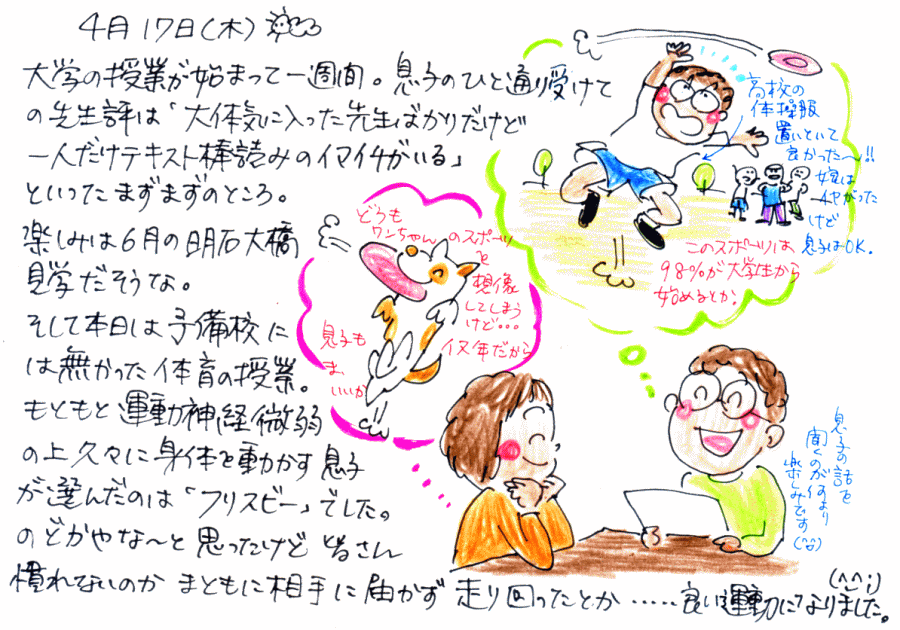 4月17日(木)
大学の授業が始まって一週間。息子のひと通り受けて
の先生評は「大体気に入った先生ばかりだけど
一人だけテキスト棒読みのイマイチがいる」
といったまずまずのところ。
楽しみは6月の明石大橋
見学だそうな。
そして本日は予備校に
は無かった体育の授業。
もともと運動神経微弱
の上久々に身体を動かす息子
が選んだのは「フリスビー」でした。
のどかやな〜と思ったけど皆さん
慣れてないのかまともに相手に届かず走り回ったとか……良い運動になりました。
(^^;)
高校の
体操服
置いといて
良かった〜!!
娘は
イヤがった
けど
息子はOK.
このスポーツは
98%が大学生から
始めるとか.
どうも
ワンちゃんのスポーツ
を
想像
してしまう
けど・・・
イヌ年だから
息子も
ま、
いいか
息子の話を
聞くのが何より
楽しみです
(^o^)